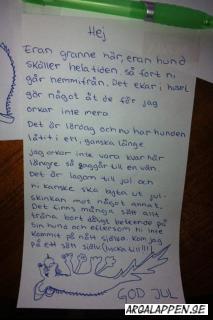 Hej
Eran granne här, eran hund
skäller hela tiden, så fort ni
går hemifrån. Det ekar i huset
gör något åt de för jag
orkar inte mera
Det är lördag och nu har hunden
låtit i ett, ganska länge
jag orkar inte vara kvar här
längre så jag går till en vän.
Det är lagom till jul och
ni kanske ska byta ut jul-
skinkan mot något annat.
Det finns många sätt att
träna bort dåligt beteende på
sin hund och eftersom ni inte
kommit på nått själva. kom jag
på ett sätt själv (lycka till!!!)
GOD JUL
ARGALAPPEN.SE